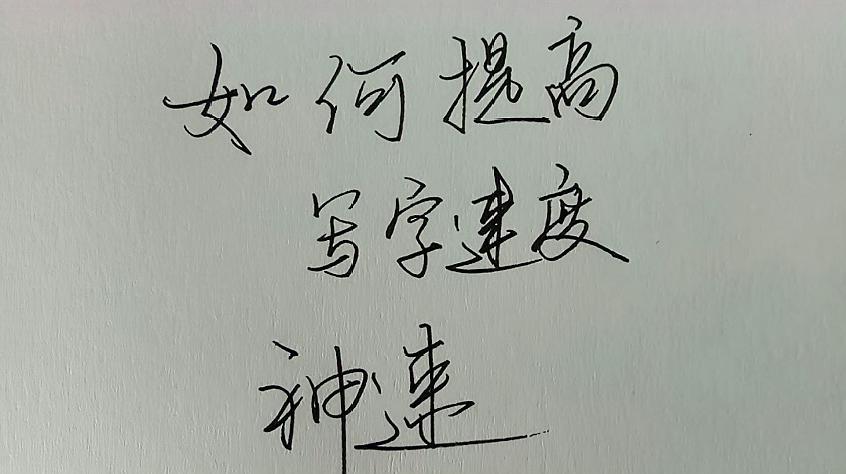 如何提高
写字速度
神速